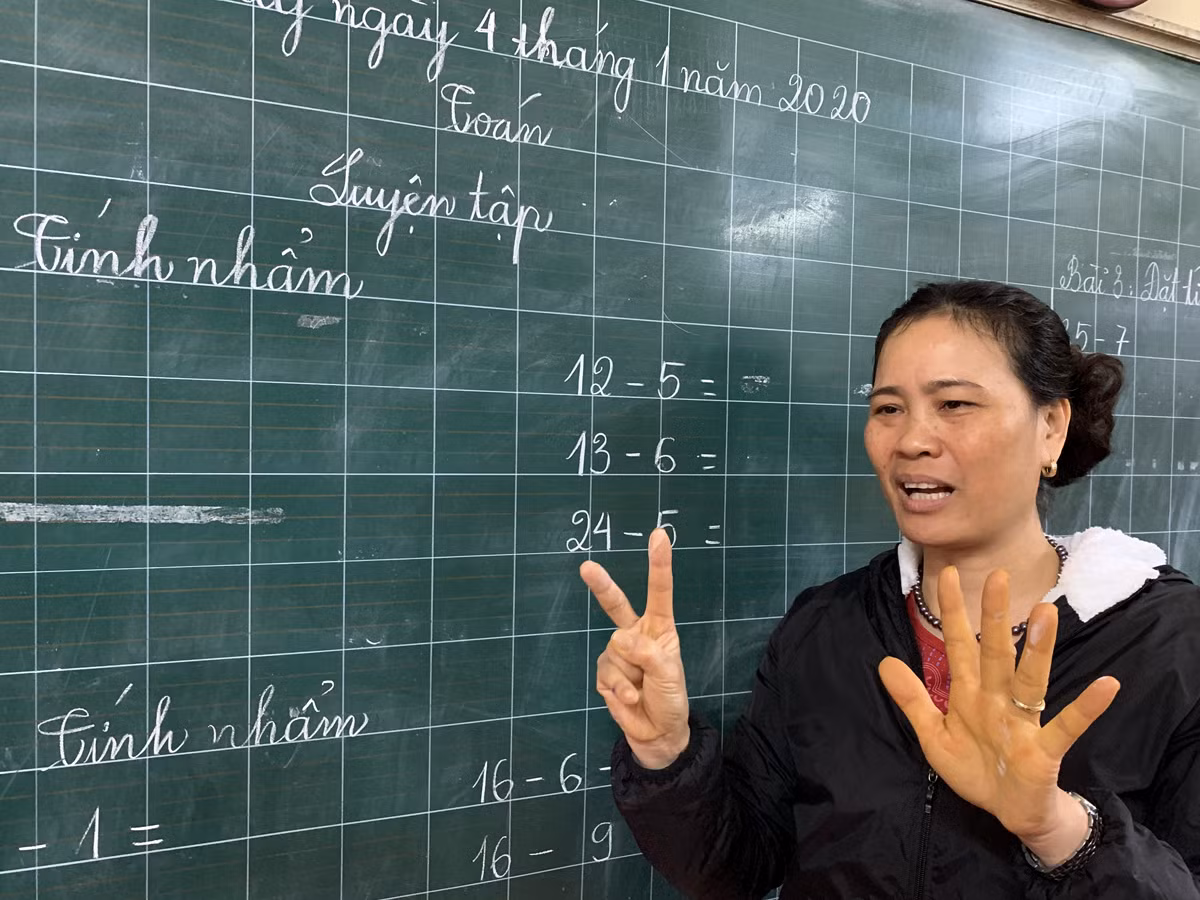 ngày 4 tháng 1 năm 2020
Toán
Luyện tập
Tính nhẩm
Bài 3: Đặt
12 - 5 =
13 - 6 =
24 - 5 =
5 - 7
Tính nhẩm
16 - 6
- 1 =
16 - 9